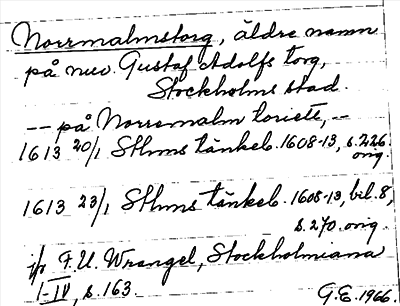 Norrmalmstorg, äldre namn
på nuv. Gustaf Adolfs torg,
Stockholms stad.
-- på Norremalm toriett, --
1613 20/1 Sthms tänkeb. 1608-13, s.226
orig.
1613 23/1 Sthms tänkeb. 1608-13, bil.8,
s.270. orig.
jfr F.U. Wrangel, Stockholmiana
I-IV, s.163.
G.E. 1966.